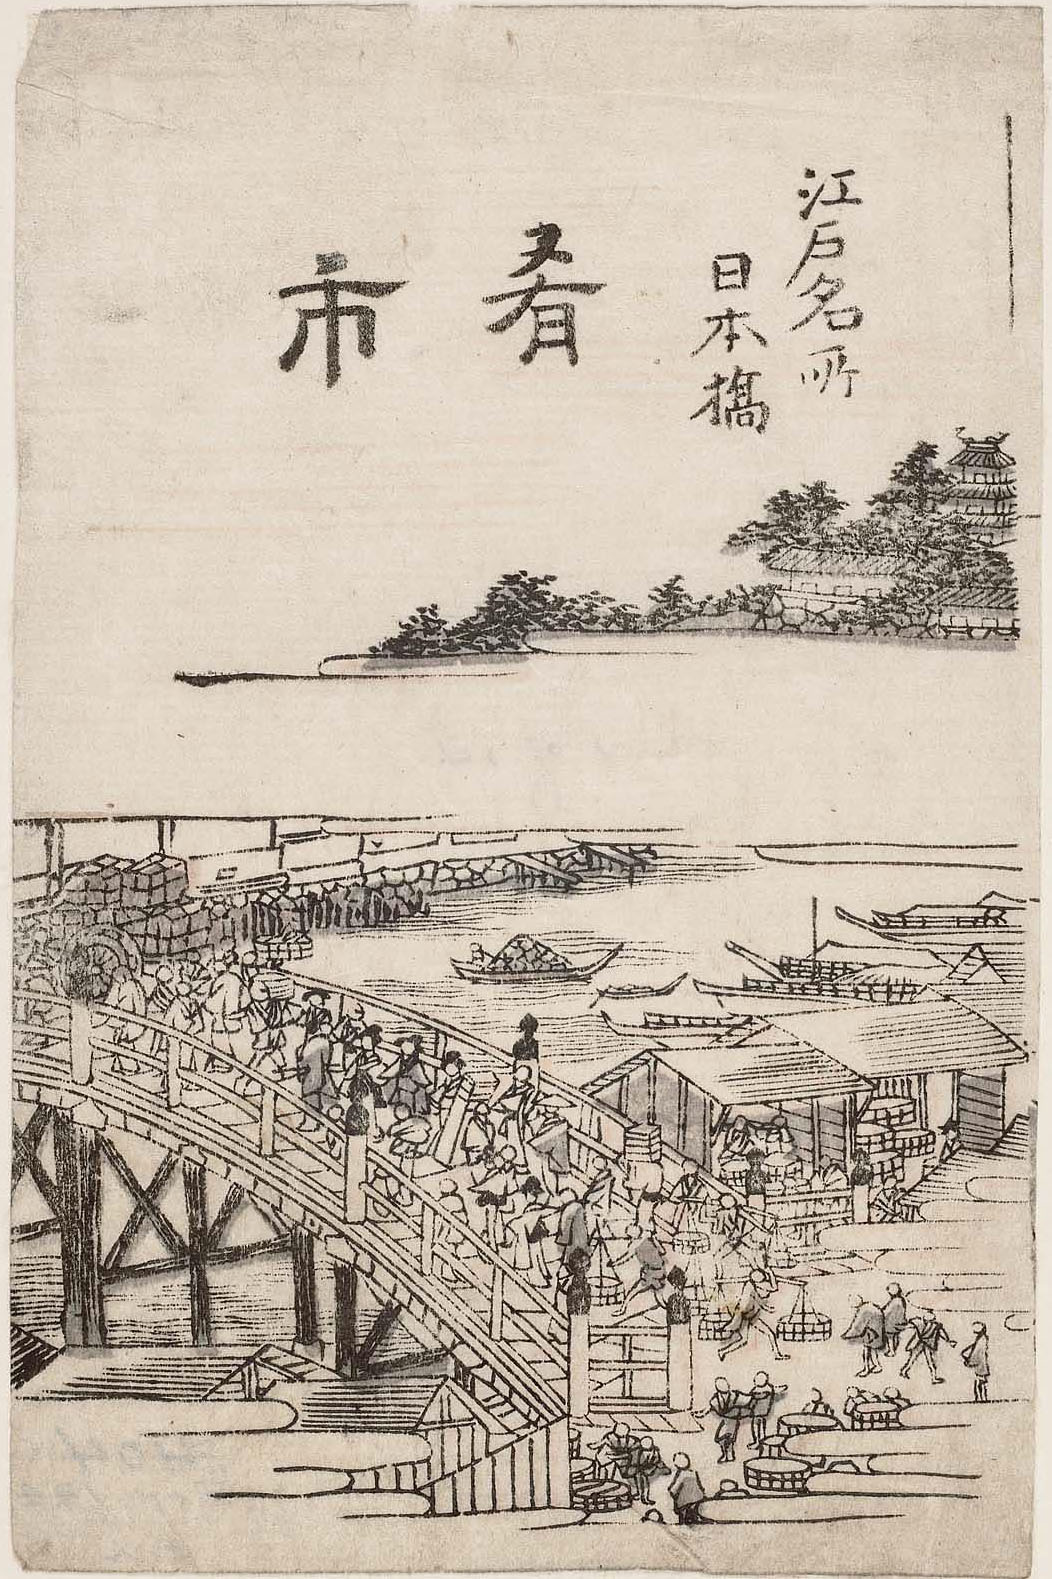 江戸名所
日本橋
肴市